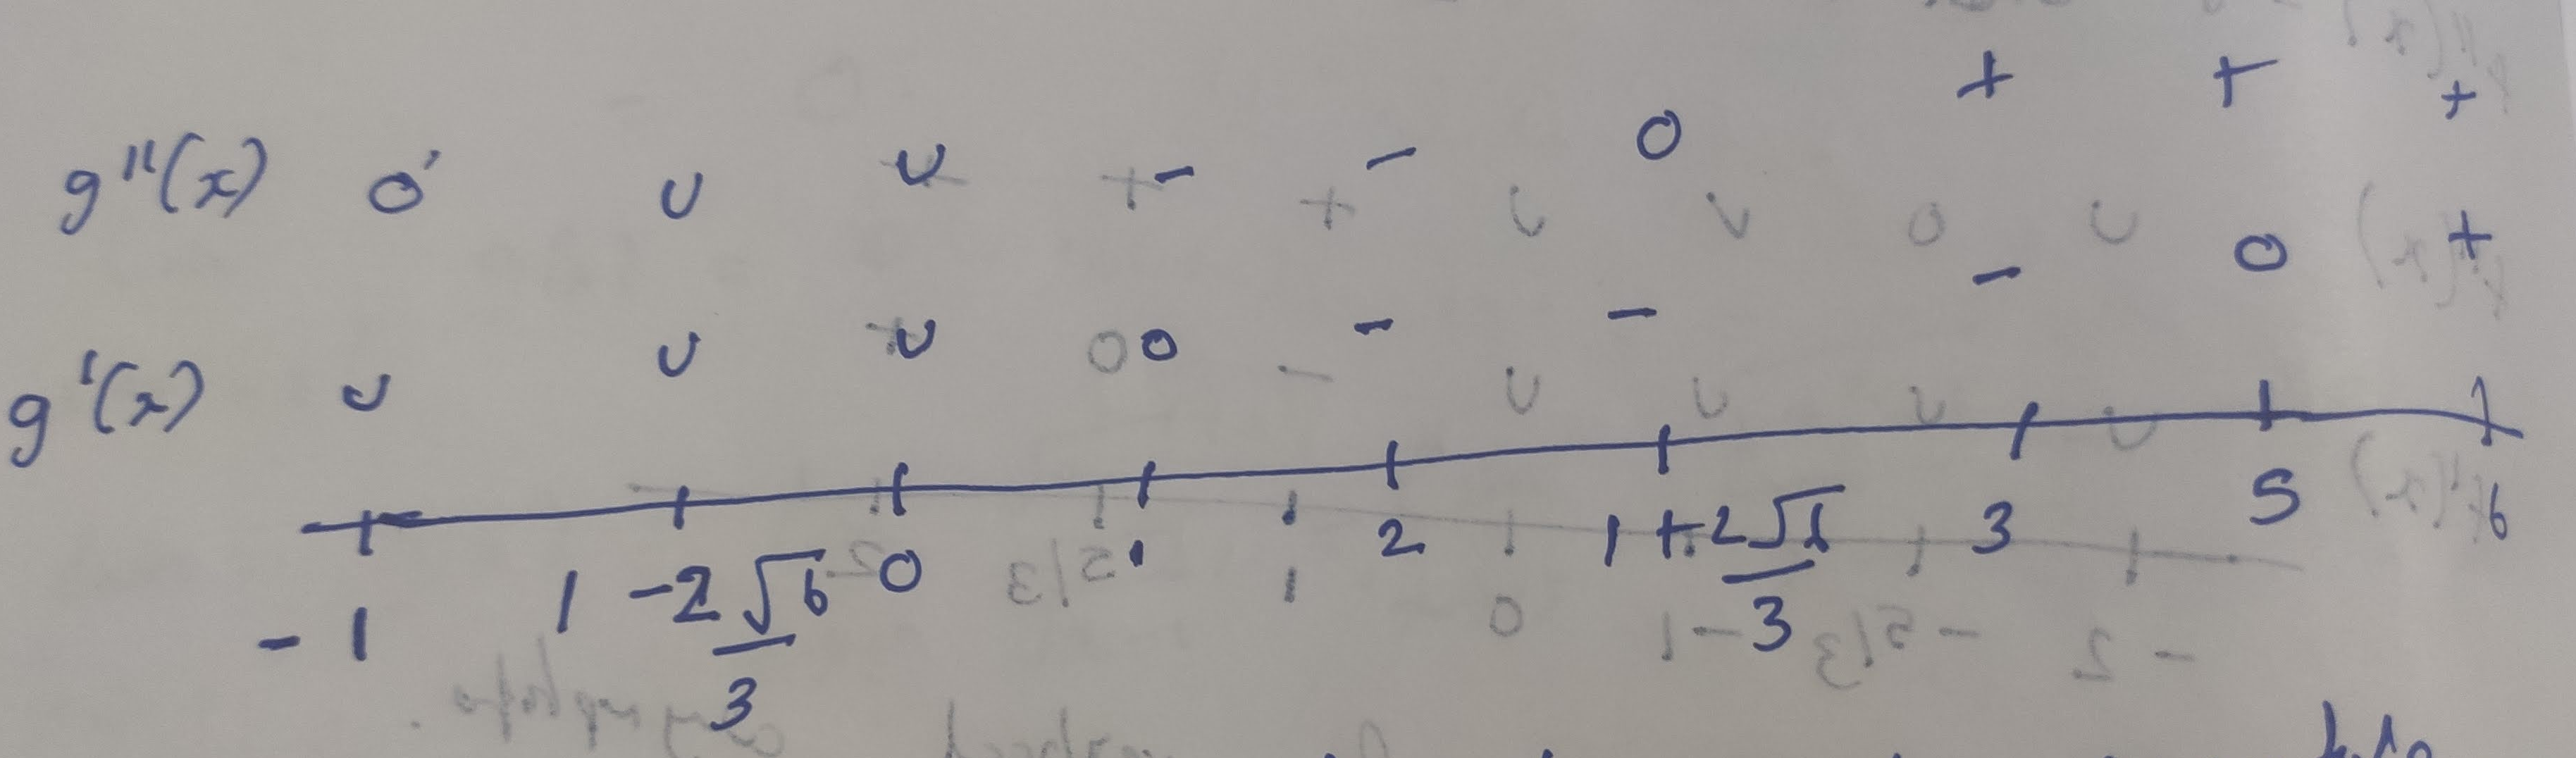 g''(x) 0 ∪ ∪ - - 0 + + +
g'(x) ∪ ∪ ∪ 0 - - - 0 +
-1 1-2√6/3 0 1 2 1+2√6/3 3 5 6